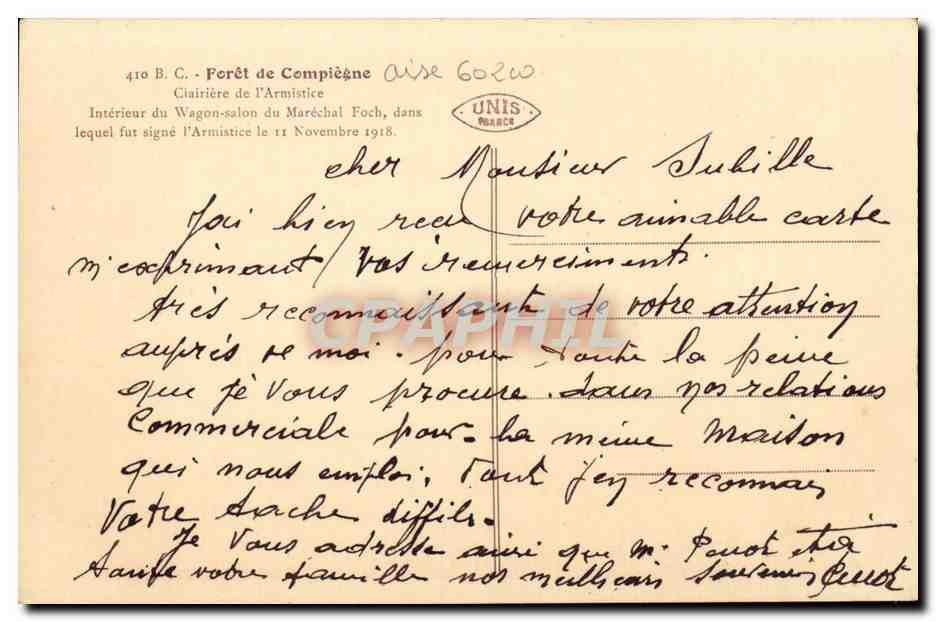 410 B. C. - Forêt de Compiègne
aise 60200
Clairière de l'Armistice
Intérieur du Wagon-salon du Maréchal Foch, dans
lequel fut signé l'Armistice le 11 Novembre 1918.
UNIS
FRANCE
cher Monsieur Subille
J'ai bien recu votre aimable carte
m'exprimant vos remerciments.
très reconnaissante de votre attention
CPAPHIL
auprès de moi. pour toute la peine
que je vous procure. dans nos relations
Commerciale pour la même maison
qui nous emploi. tout j'en reconnais
Votre tache diffils.
Je vous adresse ainsi que Mr Penot et à
toute votre famille nos meilleurs souvenirs Penot